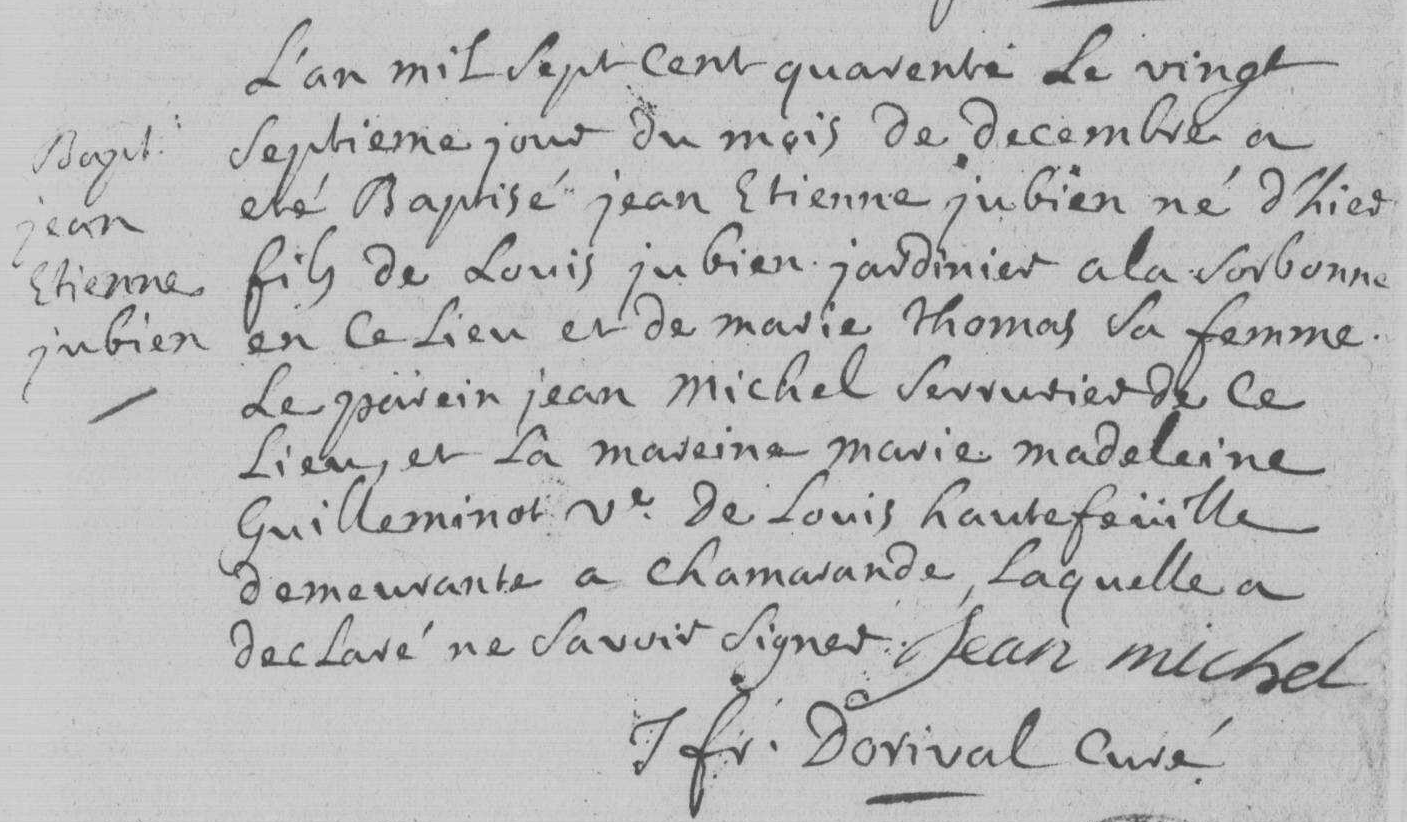 L'an mil Sept Cent quarente Le vingt
Bapt.
Septieme jour du mois de decembre a
jean
eté Baptisé jean Etienne jubien né d'hier
Etienne
fils de Louis jubien jardinier a la Sorbonne
jubien
en Ce Lieu et de marie Thomas Sa femme.
Le parein jean Michel Serrurier de Ce
Lieu, et La mareine marie madeleine
Guilleminot ve. de Louis hautefeüille
demeurante a Chamarande, Laquelle a
declaré ne Savoir Signer. Jean michel
J fr. Dorival Curé